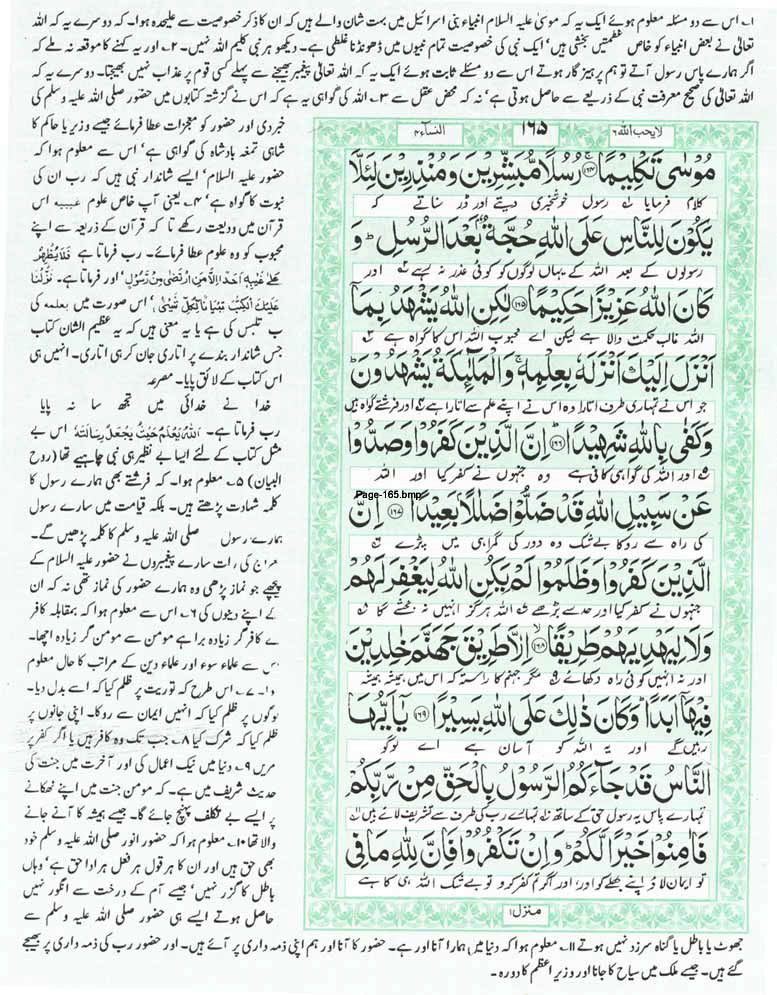 ۱۔ اس سے دو مسئلہ معلوم ہوئے ایک یہ کہ موسیٰ علیہ السلام انبیاء بنی اسرائیل میں بہت شان والے ہیں کہ ان کا ذکر خصوصیت سے علیحدہ ہوا۔ دوسرے یہ کہ اللہ
تعالیٰ نے بعض انبیاء کو خاص عظمتیں بخشی ہیں' ایک نبی کی خصوصیت تمام نبیوں میں ڈھونڈنا غلطی ہے۔ دیکھو ہر نبی کلیم اللہ نہیں۔ ۲۔ اور یہ کہنے کا موقعہ نہ ملے کہ
اگر ہمارے پاس رسول آتے تو ہم پرہیز گار ہوتے اس سے دو مسئلے ثابت ہوئے ایک یہ کہ اللہ تعالیٰ پیغمبر بھیجنے سے پہلے کسی قوم پر عذاب نہیں بھیجتا۔ دوسرے یہ کہ
اللہ تعالیٰ کی صحیح معرفت نبی کے ذریعے سے حاصل ہوتی ہے' نہ کہ محض عقل سے ۳۔ اللہ کی گواہی یہ ہے کہ اس نے گزشتہ کتابوں میں حضور صلی اللہ علیہ وسلم کی
خبر دی اور حضور کو معجزات عطا فرمائے جیسے وزیر یا حاکم کا
شاہی تمغہ بادشاہ کی گواہی ہے' اس سے معلوم ہوا کہ
حضور علیہ السلام' ایسے شاندار نبی ہیں کہ رب ان کی
نبوت کا گواہ ہے' ۴۔ یعنی آپ خاص علوم غیبیہ
قرآن میں ودیعت رکھے تا کہ قرآن کے ذریعہ سے اپنے
محبوب کو وہ علوم عطا فرمائے۔ رب فرماتا ہے فَلَا يُظْهِرُ
عَلٰى غَيْبِهٖ اَحَدًا اِلَّا مَنِ ارْتَضٰى مِنْ رَّسُوْلٍ' اور فرماتا ہے۔ نَزَّلْنَا
عَلَيْكَ الْكِتٰبَ تِبْيَانًا لِّكُلِّ شَيْءٍ' اس صورت میں بعلمہ کی
ب تلبس کی ہے یا یہ معنی ہیں کہ یہ عظیم الشان کتاب
جس شاندار بندے پر اتاری جان کر ہی اتاری۔ انہیں ہی
اس کتاب کے لائق پایا۔ مصرعہ
خدا نے خدائی میں تجھ سا نہ پایا
رب فرماتا ہے۔ اَللّٰهُ يَعْلَمُ حَيْثُ يَجْعَلُ رِسَالَتَهٗ اس بے
مثل کتاب کے لئے ایسا بے نظیر ہی نبی چاہیے تھا (روح
البیان) ۵۔ معلوم ہوا۔ کہ فرشتے بھی ہمارے رسول کا
کلمہ شہادت پڑھتے ہیں۔ بلکہ قیامت میں سارے رسول
ہمارے رسول صلی اللہ علیہ وسلم کا کلمہ پڑھیں گے۔
معراج کی رات سارے پیغمبروں نے حضور علیہ السلام کے
پیچھے جو نماز پڑھی وہ ہمارے حضور کی نماز تھی نہ کہ ان
کے اپنے دینوں کی ۶۔ اس سے معلوم ہوا کہ بمقابلہ کافر
کے کافر گر زیادہ برا ہے مومن سے مومن گر زیادہ اچھا۔
اس سے علماء سوء اور علماء دین کے مراتب کا حال معلوم
ہوا۔ ۷۔ اس طرح کہ توریت پر ظلم کیا کہ اسے بدل دیا۔
لوگوں پر ظلم کیا کہ انہیں ایمان سے روکا۔ اپنی جانوں پر
ظلم کیا کہ شرک کیا ۸۔ جب تک وہ کافر ہیں یا اگر کفر پر
مریں ۹۔ دنیا میں نیک اعمال کی اور آخرت میں جنت کی
حدیث شریف میں ہے۔ کہ مومن جنت میں اپنے ٹھکانے
پر ایسے بے تکلف پہنچ جائے گا۔ جیسے ہمیشہ کا آنے جانے
والا تھا ۱۰۔ معلوم ہوا کہ حضور انور صلی اللہ علیہ وسلم خود
بھی حق ہیں اور ان کا ہر قول ہر فعل ہر ادا حق ہے' وہاں
باطل کا گزر نہیں' جیسے آم کے درخت سے انگور نہیں
حاصل ہوتے ایسے ہی حضور صلی اللہ علیہ وسلم سے
لا یحب اللہ ۶
۱۶۵
النساء ۴
مُوْسٰى تَكْلِيْمًا ﴿۱۶۴﴾ رُسُلًا مُّبَشِّرِيْنَ وَمُنْذِرِيْنَ لِئَلَّا
کلام فرمایا رسول خوشخبری دیتے اور ڈر سناتے کہ
يَكُوْنَ لِلنَّاسِ عَلَى اللّٰهِ حُجَّةٌ بَعْدَ الرُّسُلِ ؕ وَ
رسولوں کے بعد اللہ کے یہاں لوگوں کو کوئی عذر نہ رہے اور
كَانَ اللّٰهُ عَزِيْزًا حَكِيْمًا ﴿۱۶۵﴾ لٰكِنِ اللّٰهُ يَشْهَدُ بِمَاۤ
اللہ غالب حکمت والا ہے لیکن اے محبوب اللہ اس کا گواہ ہے
اَنْزَلَ اِلَيْكَ اَنْزَلَهٗ بِعِلْمِهٖ ۚ وَالْمَلٰٓئِكَةُ يَشْهَدُوْنَ ؕ
جو اس نے تمہاری طرف اتارا وہ اس نے اپنے علم سے اتارا ہے اور فرشتے گواہ ہیں
وَكَفٰى بِاللّٰهِ شَهِيْدًا ﴿۱۶۶﴾ اِنَّ الَّذِيْنَ كَفَرُوْا وَصَدُّوْا
اور اللہ کی گواہی کافی ہے وہ جنہوں نے کفر کیا اور اللہ
Page-165.bmp
عَنْ سَبِيْلِ اللّٰهِ قَدْ ضَلُّوْا ضَلٰلًاۢ بَعِيْدًا ﴿۱۶۷﴾ اِنَّ
کی راہ سے روکا بے شک وہ دور کی گمراہی میں پڑے
الَّذِيْنَ كَفَرُوْا وَظَلَمُوْا لَمْ يَكُنِ اللّٰهُ لِيَغْفِرَ لَهُمْ
جنہوں نے کفر کیا اور حد سے بڑھے اللہ ہرگز انہیں نہ بخشے گا
وَلَا لِيَهْدِيَهُمْ طَرِيْقًا ﴿۱۶۸﴾ اِلَّا طَرِيْقَ جَهَنَّمَ خٰلِدِيْنَ
اور نہ انہیں کوئی راہ دکھائے مگر جہنم کا راستہ کہ اس میں ہمیشہ ہمیشہ
فِيْهَاۤ اَبَدًا ؕ وَكَانَ ذٰلِكَ عَلَى اللّٰهِ يَسِيْرًا ﴿۱۶۹﴾ يٰۤاَيُّهَا
رہیں گے اور یہ اللہ کو آسان ہے اے لوگو
النَّاسُ قَدْ جَآءَكُمُ الرَّسُوْلُ بِالْحَقِّ مِنْ رَّبِّكُمْ
تمہارے پاس یہ رسول حق کے ساتھ تمہارے رب کی طرف سے تشریف لائے ہیں
فَاٰمِنُوْا خَيْرًا لَّكُمْ ؕ وَاِنْ تَكْفُرُوْا فَاِنَّ لِلّٰهِ مَا فِى
تو ایمان لاؤ اپنے بھلے کو اور اگر تم کفر کرو تو بے شک اللہ ہی کا ہے
منزل ۱
جھوٹ یا باطل یا گناہ سرزد نہیں ہوتے ۱۱۔ معلوم ہوا کہ دنیا میں ہمارا آنا اور ہے۔ حضور کا آنا اور ہم اپنی ذمہ داری پر آئے ہیں۔ اور حضور رب کی ذمہ داری پر بھیجے
گئے ہیں۔ جیسے ملک میں سیاح کا جانا اور وزیر اعظم کا دورہ۔